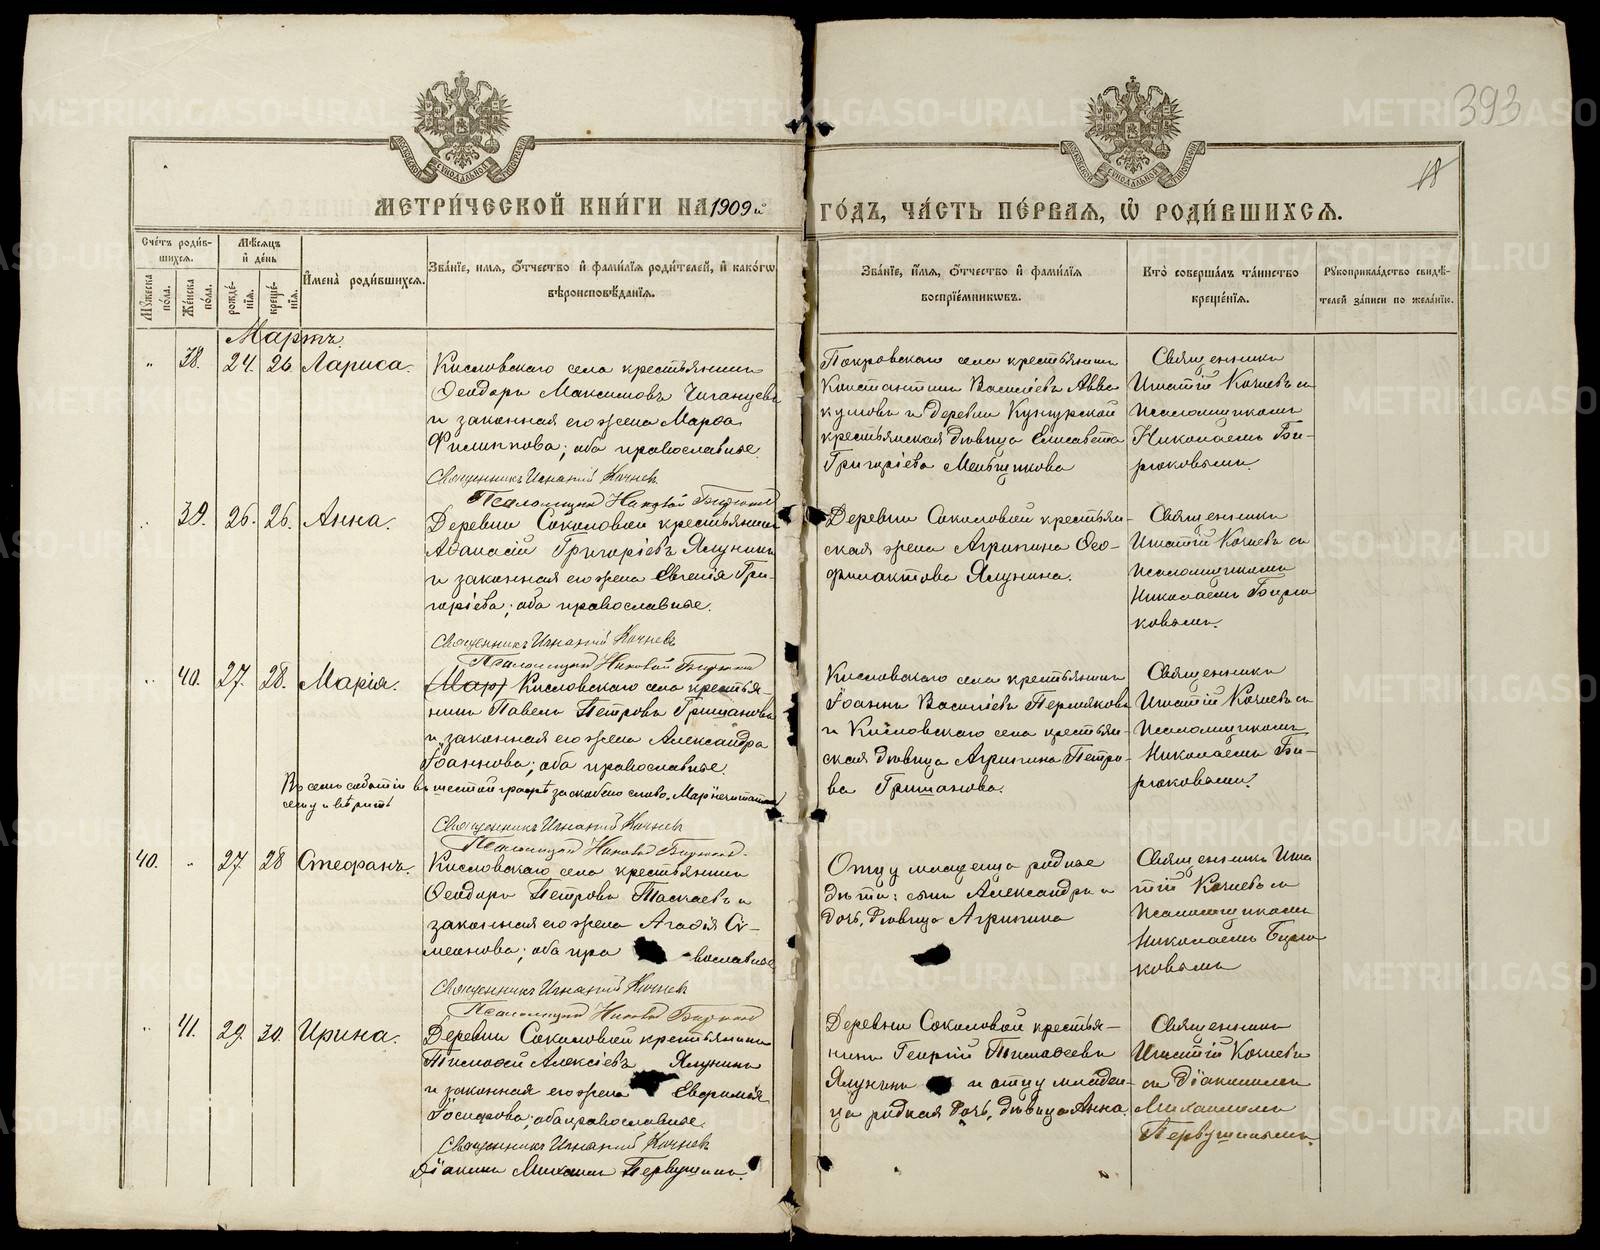 393
18
МЕТРИ́ЧЕСКОЙ КНИ́ГИ НА 1909 й ГО́ДЪ, ЧА́СТЬ ПЕ́РВАЯ, Ѡ РОДИ́ВШИХСЯ.
Сче́тъ роди́в-
шихся.
Мѣ́сяцъ
и де́нь
Мꙋ́жеска по́ла.
Же́нска по́ла.
рожде́-
нїя.
креще́-
нїя.
И҆мена̀ роди́вшихся.
Зва́нїе, и҆мя, ѻ҆́тчество и҆ фами́лїя роди́телей, и҆ како́гѡ
вѣ́роисповѣ́данїя.
Зва́нїе, и҆́мя, ѻ҆́тчество и҆ фами́лїя
воспрїе́мниковъ.
Кто̀ соверша́лъ та́инство
креще́нїя.
Рꙋкоприкла́дство свидѣ́-
телей за́писи по жела́нїю.
Мартъ.
" 38. 24. 26 Лариса.
Кисловскаго села крестьянинъ
Ѳеодоръ Максимовъ Чиганцевъ
и законная его жена Марѳа
Филиппова; оба православные.
Священникъ Игнатій Кочневъ
Псаломщикъ Николай Бирюков
Покровскаго села крестьянинъ
Константинъ Васильевъ Авва
кумовъ и деревни Кунгурской
крестьянская дѣвица Елисавета
Григоріева Меньшикова
Священникъ
Игнатій Кочневъ съ
псаломщикомъ
Николаемъ Би-
рюковымъ.
" 39. 26. 26. Анна.
Деревни Соколовой крестьянинъ
Аѳанасій Григоріевъ Ялунинъ
и законная его жена Евгенія Гри-
горіева; оба православные.
Священникъ Игнатій Кочневъ
Псаломщикъ Николай Бирюков
Деревни Соколовой крестьян-
ская жена Агрипина Ѳео-
филактова Ялунина.
Священникъ
Игнатій Кочневъ съ
псаломщикомъ
Николаемъ Бирю
ковымъ.
" 40. 27. 28. Марія.
(Мар) Кисловскаго села крестья-
нинъ Павелъ Петровъ Гришановъ
и законная его жена Александра
Іоаннова; оба православные.
Въ семъ событіи въ шестой графѣ за скобою слово "Мар" не читать
сему и вѣрить
Священникъ Игнатій Кочневъ
Псаломщикъ Николай Бирюков.
Кисловскаго села крестьянинъ
Іоаннъ Васильевъ Пермяковъ
и Кисловскаго села крестьян-
ская дѣвица Агрипина Петро-
ва Гришанова.
Священникъ
Игнатій Кочневъ съ
псаломщикомъ
Николаемъ Би-
рюковымъ.
40. " 27 28 Стефанъ.
Кисловскаго села крестьянинъ
Ѳеодоръ Петровъ Таскаевъ и
законная его жена Агафія Си-
меонова; оба пра вославные
Священникъ Игнатій Кочневъ
Псаломщикъ Николай Бирюков
Отцу младенца родные
дѣти: сынъ Александръ и
дочь, дѣвица Агрипина
Священникъ Игна
тій Кочневъ съ
псаломщикомъ
Николаемъ Бирю
ковымъ
" 41. 29. 30. Ирина.
Деревни Соколовой крестьянинъ
Тимоѳей Алексѣевъ Ялунинъ
и законная его жена Евфимія
Іосифова; оба православные.
Священникъ Игнатій Кочневъ
Діаконъ Михаилъ Первушинъ.
Деревни Соколовой крестья-
нинъ Георгій Тимоѳеевъ
Ялунинъ и отцу младен-
ца родная дочь, дѣвица Анна.
Священникъ
Игнатій Кочневъ
съ діакономъ
Михаиломъ
Первушинымъ.
METRIKI.GASO-URAL.RU